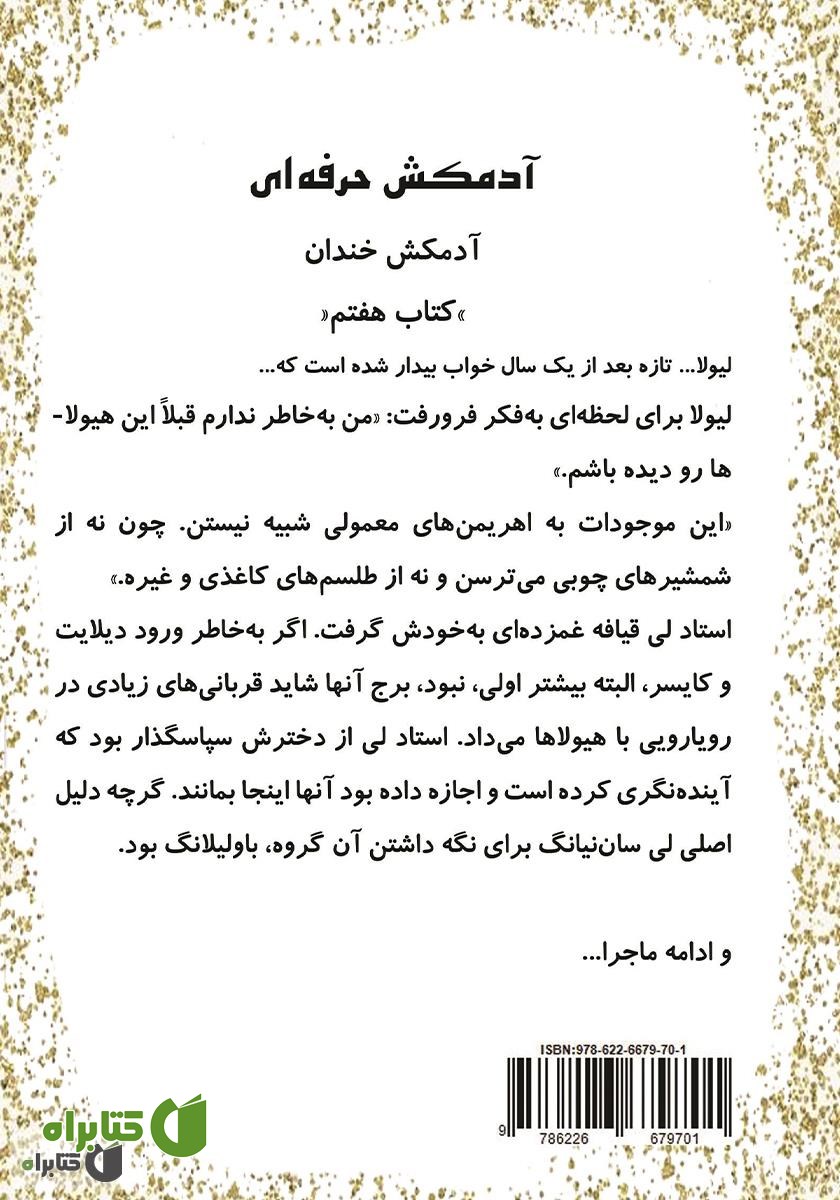 آدمکش حرفه‌ای
آدمکش خندان
»کتاب هفتم«
لیولا... تازه بعد از یک سال خواب بیدار شده است که...
لیولا برای لحظه‌ای به‌فکر فرورفت: «من به‌خاطر ندارم قبلاً این هیولا-
ها رو دیده باشم.»
«این موجودات به اهریمن‌های معمولی شبیه نیستن. چون نه از
شمشیرهای چوبی می‌ترسن و نه از طلسم‌های کاغذی و غیره.»
استاد لی قیافه غمزده‌ای به‌خودش گرفت. اگر به‌خاطر ورود دیلایت
و کایسر، البته بیشتر اولی، نبود، برج آنها شاید قربانی‌های زیادی در
رویارویی با هیولاها می‌داد. استاد لی از دخترش سپاسگذار بود که
آینده‌نگری کرده است و اجازه داده بود آنها اینجا بمانند. گرچه دلیل
اصلی لی سان‌نیانگ برای نگه داشتن آن گروه، باولیلانگ بود.
و ادامه ماجرا...
ISBN:978-622-6679-70-1
9 786226 679701
کتابراه
کتابراه